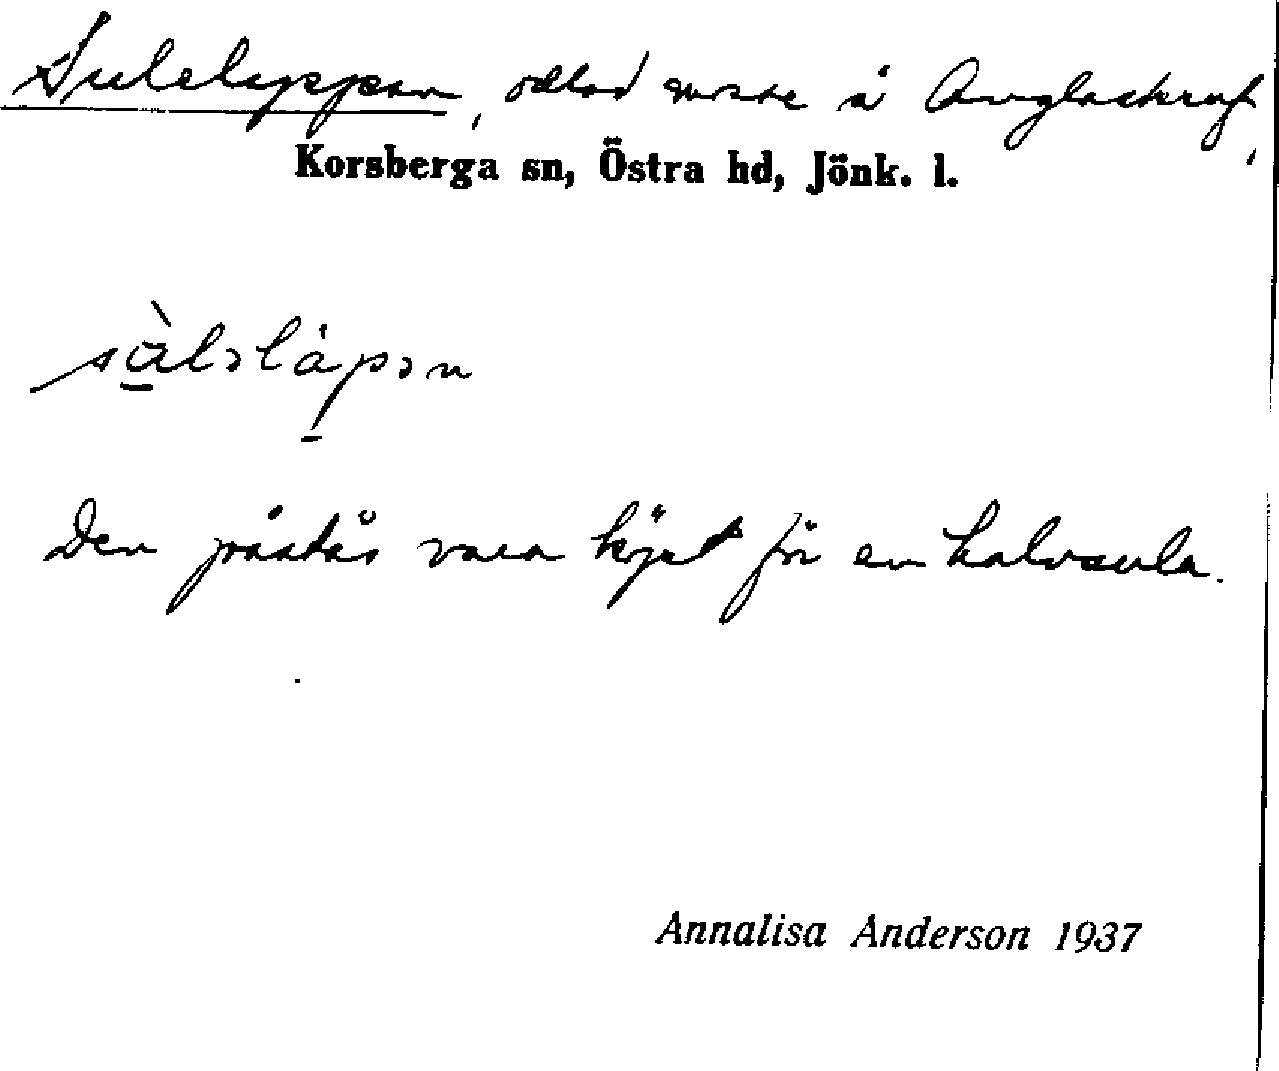 Sulelappen, odlad mosse å Anglaskruf,
Korsberga sn, Östra hd, Jönk. l.
sàlǝlápǝn
Den påstås vara köpt för en halvsula.
Annalisa Anderson 1937